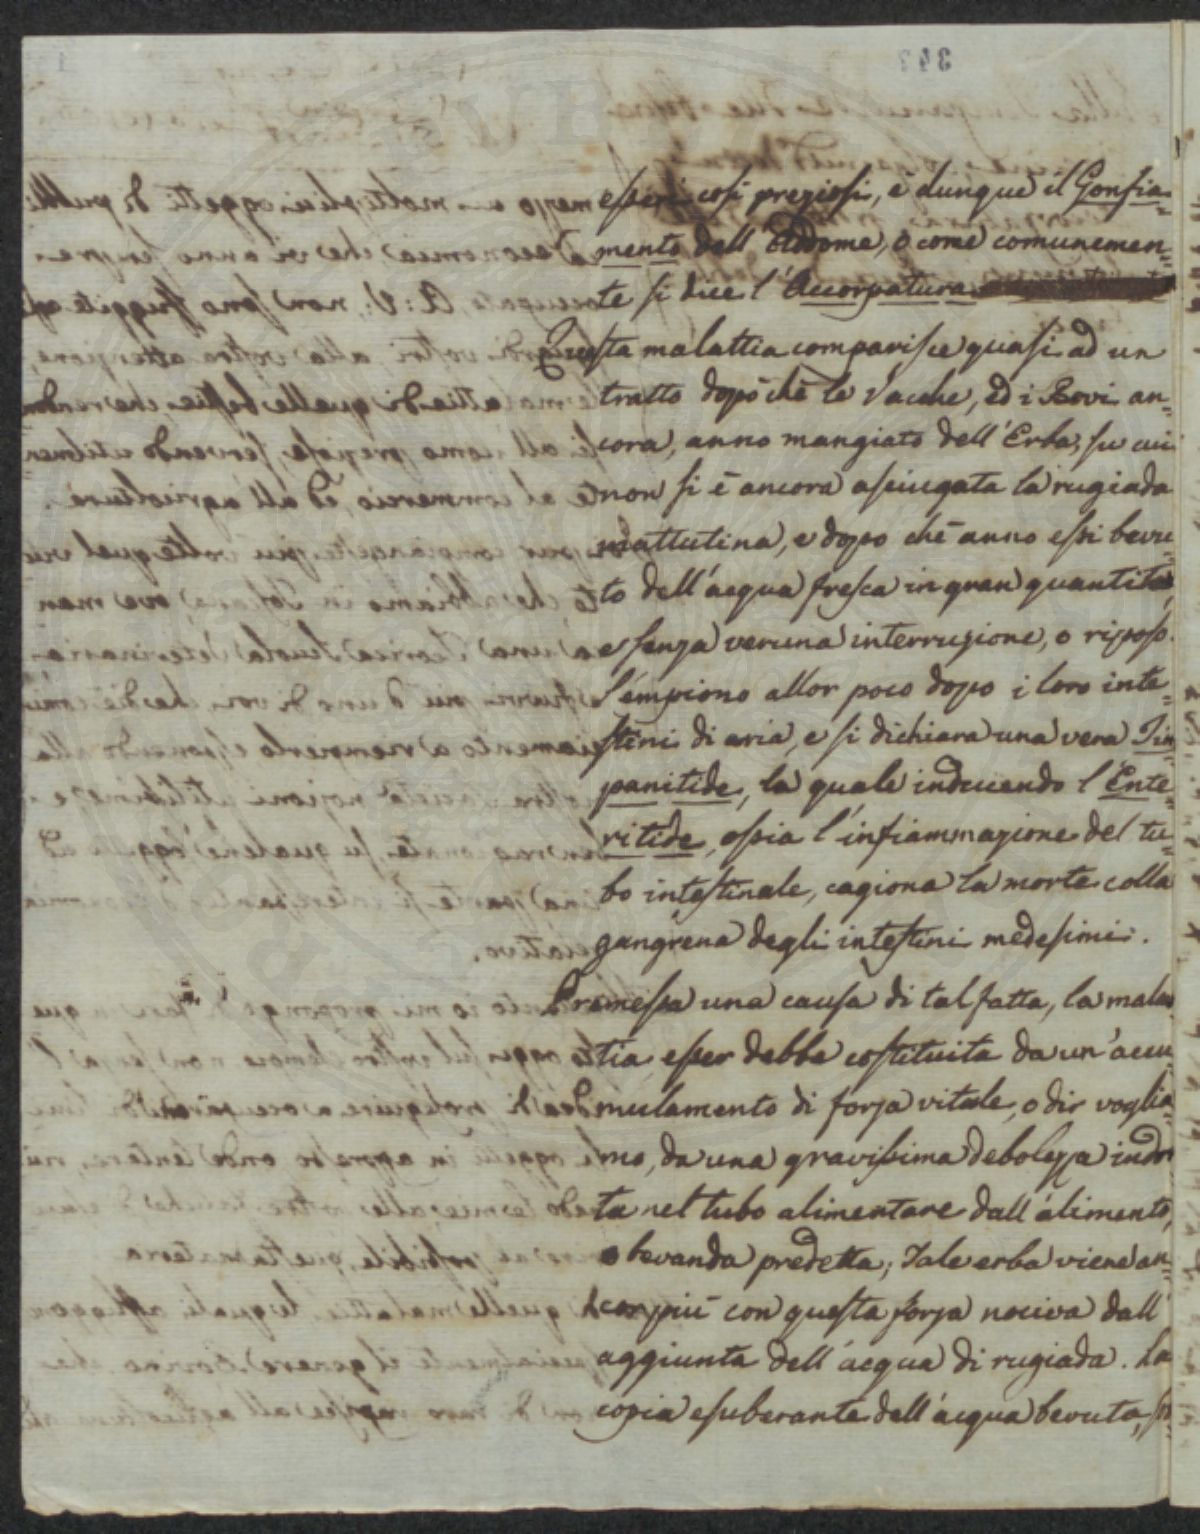 esseri così preziosi, e dunque il Gonfia=
mento dell'Addome, o come comunemen=
te si dice l'Accorpatura
Questa malattia comparisce quasi ad un
tratto dopo chè le Vacche, ed i Bovi an=
cora, anno mangiato dell'Erba, su cui
non si è ancora asciugata la rugiada
mattutina, e dopo chè anno essi bevu=
to dell'acqua fresca in gran quantità,
e senza veruna interruzione, o riposo.
S'empiono allor poco dopo i loro inte=
stini di aria, e si dichiara una vera Tim
panitide, la quale inducendo l'Ente=
ritide, ossia l'infiammazione del tu=
bo intestinale, cagiona la morte colla
gangrena degli intestini medesimi.
Premessa una causa di tal fatta, la mala
tia esser debbe costituita da un'accu=
mulamento di forza vitale, o dir voglia=
mo, da una gravissima debolezza indot
ta nel tubo alimentare dall'alimento,
o bevanda predetta; Tale erba viene an=
cor più con questa forza nociva dall'
aggiunta dell'acqua di rugiada. La
copia esuberante dell'acqua bevuta,